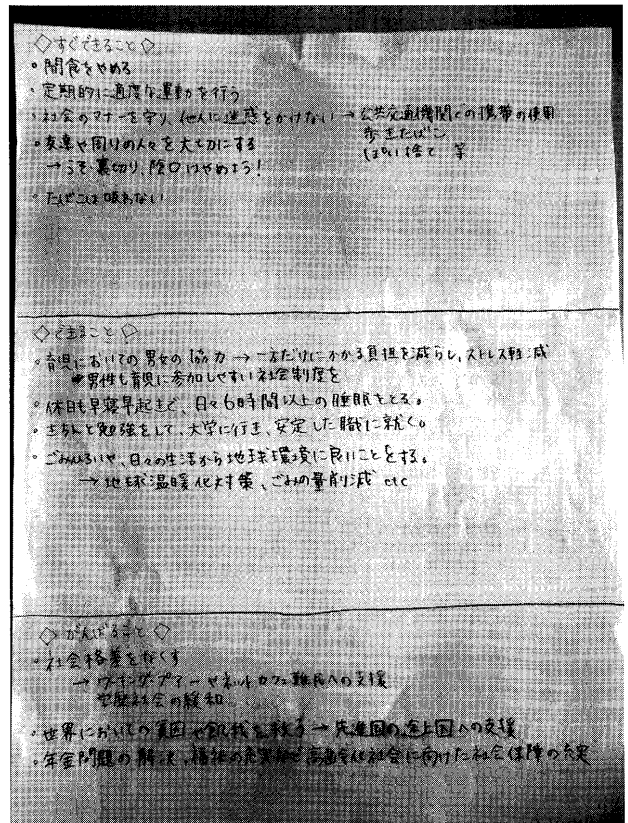 ◇すぐできること◇
・間食をやめる
・定期的に適度な運動を行う
・社会のマナーを守り、他人に迷惑をかけない → 公共交通機関での携帯の使用
歩きたばこ
ぽい捨て 等
・友達や周りの人々を大切にする
→うそ、裏切り、陰口はやめよう!
・たばこは吸わない
◇できること◇
・育児においての男女の協力 → 一方だけにかかる負担を減らし、ストレス軽減
男性も育児に参加しやすい社会制度を
・休日も早寝早起きで、日々6時間以上の睡眠をとる。
・きちんと勉強をして、大学に行き、安定した職に就く。
・ごみひろいや、日々の生活から地球環境に良いことをする。
→ 地球温暖化対策、ごみの量削減 etc
◇がんばること◇
・社会格差をなくす
→ ワーキングプアーやネットカフェ難民への支援
社会の緩和
・世界においての貧困や飢餓を救う → 先進国の途上国への支援
・年金問題の解決、福祉の充実 高齢化社会に向けた社会保障の充実